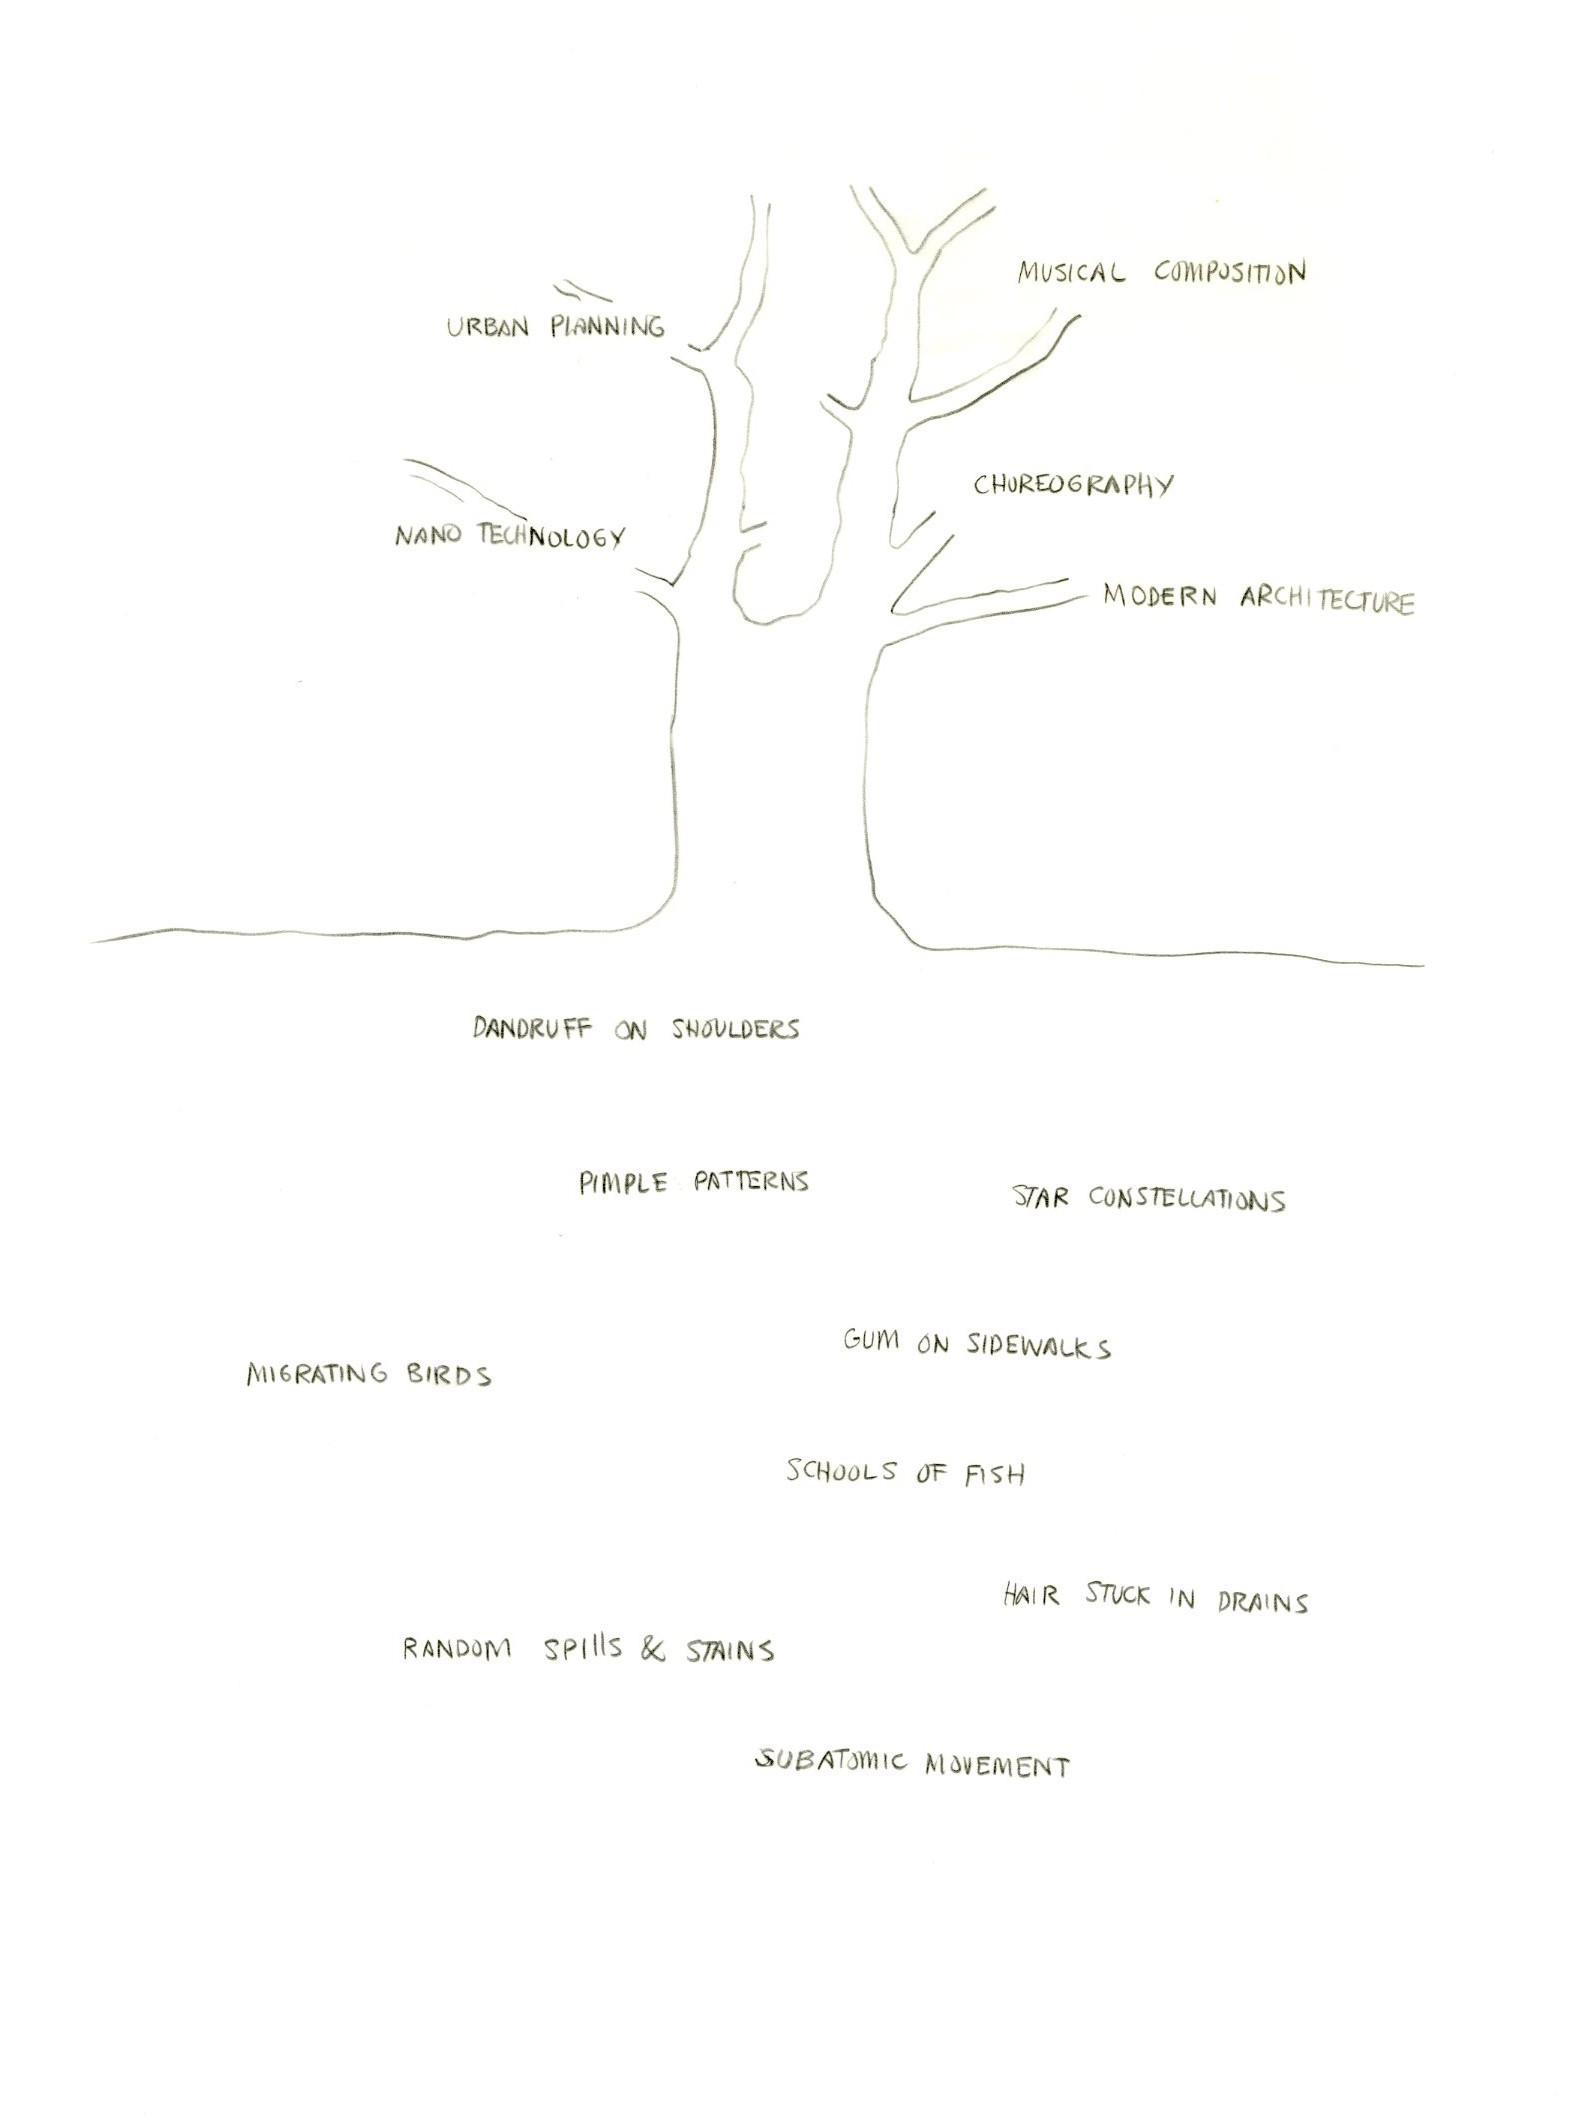 MUSICAL COMPOSITION
URBAN PLANNING
CHOREOGRAPHY
NANO TECHNOLOGY
MODERN ARCHITECTURE
DANDRUFF ON SHOULDERS
PIMPLE PATTERNS
STAR CONSTELLATIONS
GUM ON SIDEWALKS
MIGRATING BIRDS
SCHOOLS OF FISH
HAIR STUCK IN DRAINS
RANDOM SPIllS & STAINS
SUBATOMIC MOVEMENT